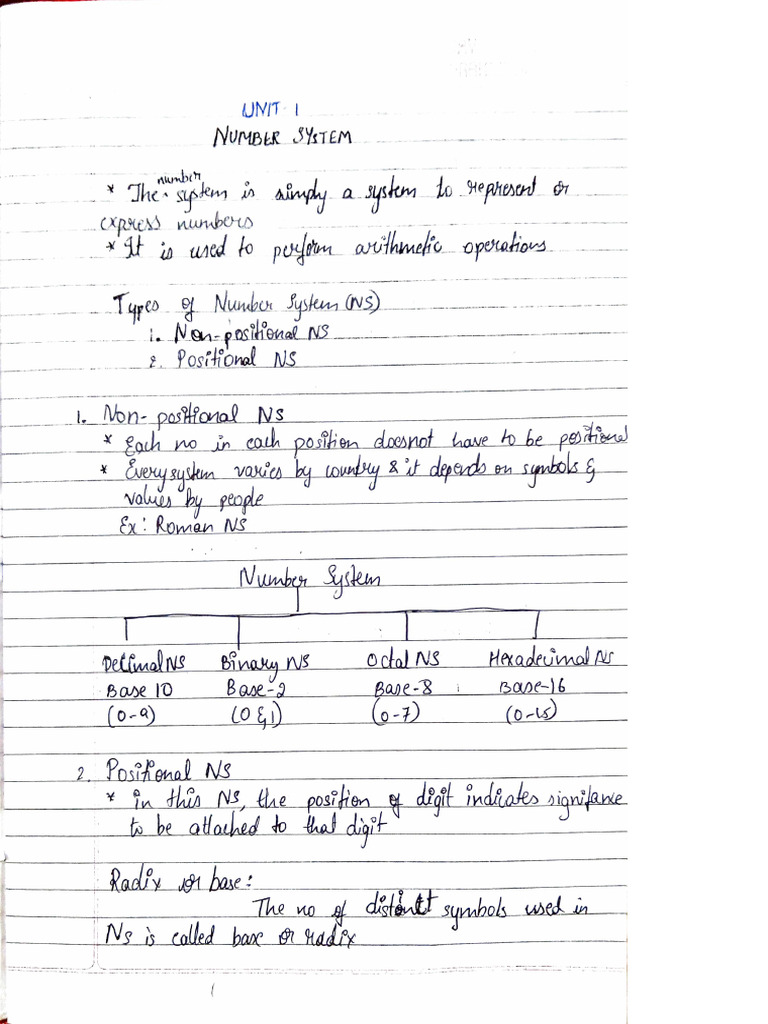 UNIT-1
NUMBER SYSTEM
* The number system is simply a system to represent or
express numbers
* It is used to perform arithmetic operations
Types of Number System (NS)
1. Non-positional NS
2. Positional NS
1. Non-positional NS
* Each no in each position doesnot have to be positional
* Every system varies by country & it depends on symbols &
values by people
Ex: Roman NS
Number System
Decimal NS Binary NS Octal NS Hexadecimal NS
Base 10 Base-2 Base-8 Base-16
(0-9) (0 & 1) (0-7) (0-15)
2. Positional NS
* in this NS, the position of digit indicates signifance
to be attached to that digit
Radix or base:
The no of distinct symbols used in
NS is called base or radix